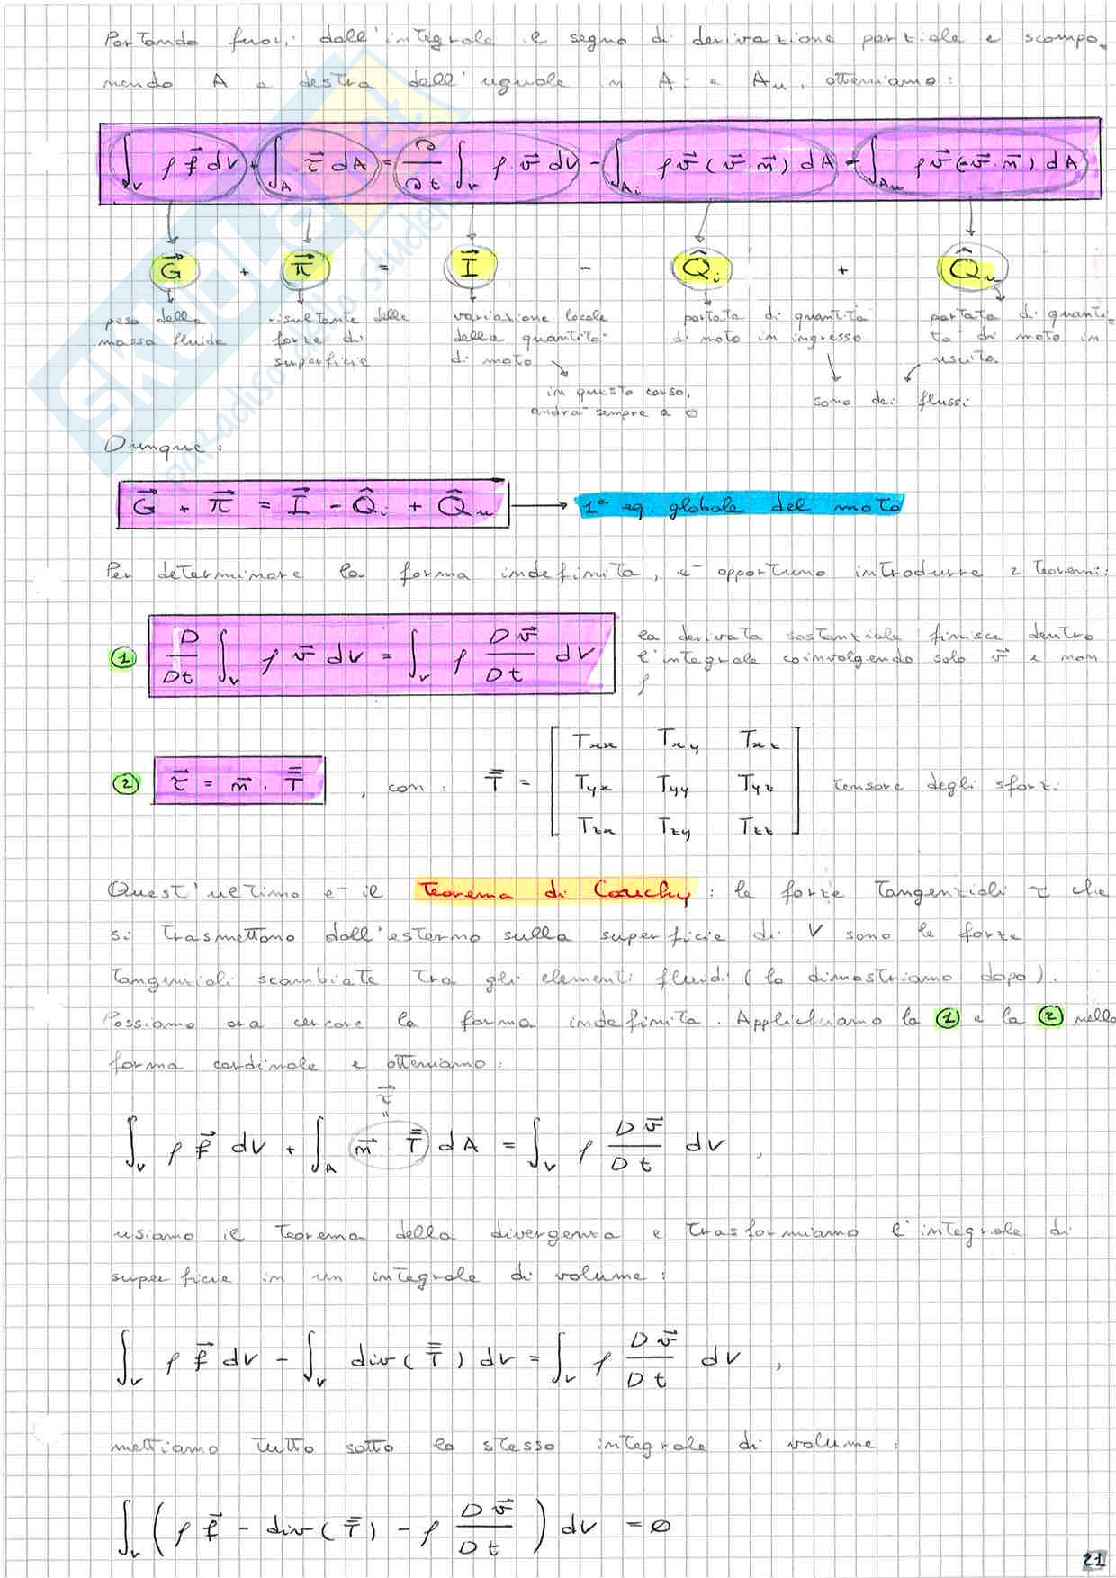 Portando fuori dall'integrale il segno di derivazione parziale e scompo-
nendo A a destra dell'uguale in Ai e Au, otteniamo:
∫_V ρ f⃗ dV + ∫_A τ⃗ dA = ∂/∂t ∫_V ρ v⃗ dV - ∫_Ai ρ v⃗ (v⃗ · n⃗) dA - ∫_Au ρ v⃗ (v⃗ · n⃗) dA
G⃗ + π⃗ = I⃗ - Q̂i + Q̂u
peso della massa fluida
risultante delle forze di superficie
variazione locale della quantità di moto
portata di quantità di moto in ingresso
portata di quantità di moto in uscita
in questo corso, andrà sempre a 0
sono dei flussi
Dunque:
G⃗ + π⃗ = I⃗ - Q̂i + Q̂u → 1ª eq globale del moto
Per determinare la forma indefinita, è opportuno introdurre 2 teoremi:
① D/Dt ∫_V ρ v⃗ dV = ∫_V ρ Dv⃗/Dt dV
la derivata sostanziale finisce dentro
l'integrale coinvolgendo solo v⃗ e non
ρ
② τ⃗ = n⃗ · T̿ , con: T̿ = [Txx Txy Txz
Tyx Tyy Tyz
Tzx Tzy Tzz] tensore degli sforzi
Quest'ultimo è il Teorema di Cauchy: le forze tangenziali τ che
si trasmettono dall'esterno sulla superficie di V sono le forze
tangenziali scambiate tra gli elementi fluidi (lo dimostriamo dopo).
Possiamo ora cercare la forma indefinita. Applichiamo la ① e la ② nella
forma cardinale e otteniamo:
τ⃗
"
∫_V ρ f⃗ dV + ∫_A n⃗ T̿ dA = ∫_V ρ Dv⃗/Dt dV ,
usiamo il teorema della divergenza e trasformiamo l'integrale di
superficie in un integrale di volume:
∫_V ρ f⃗ dV - ∫_V div(T̿) dV = ∫_V ρ Dv⃗/Dt dV ,
mettiamo tutto sotto lo stesso integrale di volume:
∫_V (ρ f⃗ - div(T̿) - ρ Dv⃗/Dt) dV = 0
21